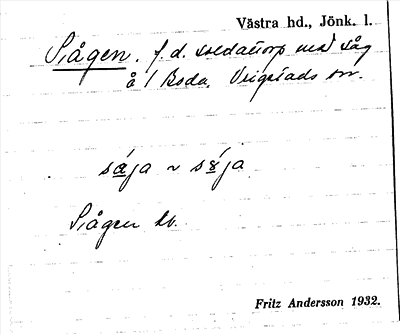 Västra hd., Jönk. l.
Siågen. f. d. soldattorp med såg
å / Boda, Vrigstads sn.
såja ~ sɤ́ja
Siågen kv.
Fritz Andersson 1932.